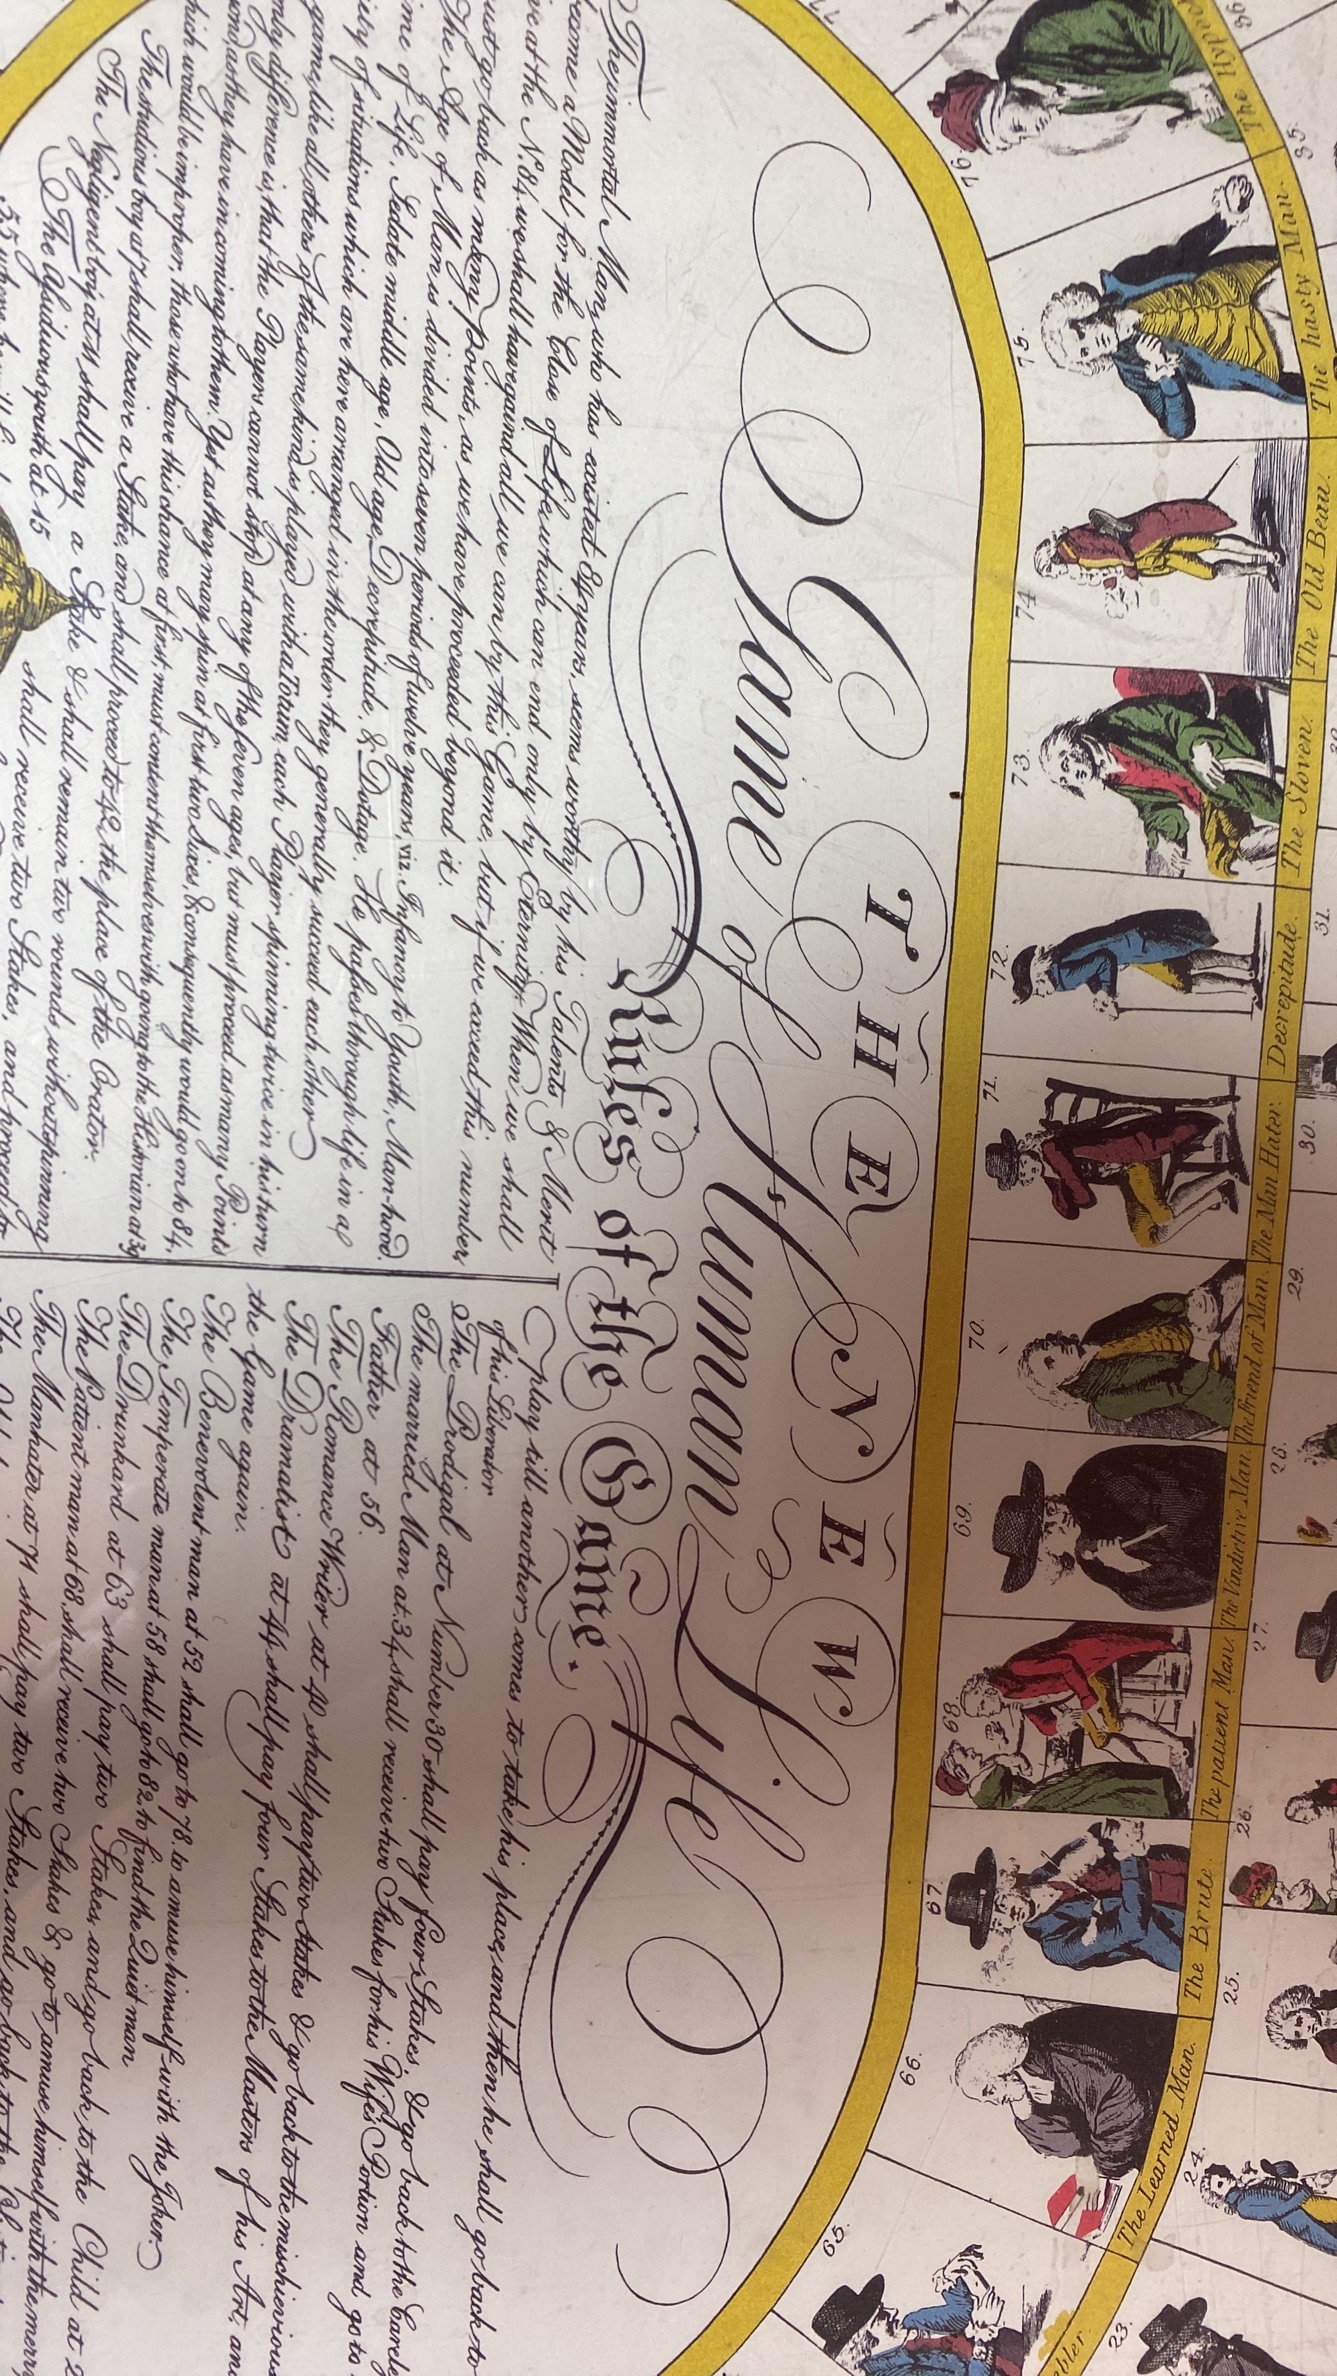 THE NEW
Game of Human Life
Rules of the Game.
The immortal Man, who has existed 84 years, seems worthy by his Talents & Merit
become a Model for the Close of Life, which can end only by Eternity. When we shall
at the N.º 84, we shall have gain'd all we can by this Game, but if we exceed this number
must go back as many Points, as we have proceeded beyond it.
The Age of Man is divided into seven periods of twelve years, viz. Infancy to Youth, Manhood,
me of Life, Sedate middle age, Old age, Decrepitude, & Dotage. He passes through life in a
of situations which are here arranged in the order they generally succeed each other
game, like all others of the same kind, is played with a Totum, each Player spinning twice in his turn
only difference is, that the Players cannot stop at any of the seven ages, but must proceed as many Points
as they have in coming to them. Yet as they may spin at first two Sixes, & consequently would go on to 84,
which would be improper, those who have this chance at first, must content themselves with going to the Historian at 39
The studious boy at 7 shall receive a Stake, and shall proceed to 42 the place of the Orator.
The Negligent boy at 11 shall pay a Stake & shall remain two rounds without spinning
The Assiduous youth at 15
shall receive two Stakes, and proceed to
55 where he will
play till another comes to take his place, and then he shall go back to
of his Liberator
The Prodigal at Number 30 shall pay four Stakes, & go back to the Careless
The married Man at 34 shall receive two Stakes for his Wife's Portion and go to
Father at 56.
The Romance Writer at 40 shall pay two Stakes & go back to the mischievious
The Dramatist at 44 shall pay four Stakes to the Masters of his Art, and
the Game again.
The Benevolent man at 52 shall go to 78, to amuse himself with the Joker.
The Temperate man at 58 shall go to 82 to find the Quiet man
The Drunkard at 63 shall pay two Stakes, and go back to the Child at 2
The Patient man at 68, shall receive two Stakes & go to amuse himself with the merry
The Manhater at 71 shall pay two Stakes, and go back to the
77
76.
The Hypoc
36
75.
The hasty Man.
35.
74
The Old Beau.
73.
The Sloven.
72.
Decrepitude.
31.
71.
The Man Hater.
30.
70.
The Friend of Man.
29.
69.
The Vindictive Man.
28.
68.
The patient Man.
27.
67.
The Brute.
26.
66.
The Learned Man.
25.
24.
65.
bler.
23.